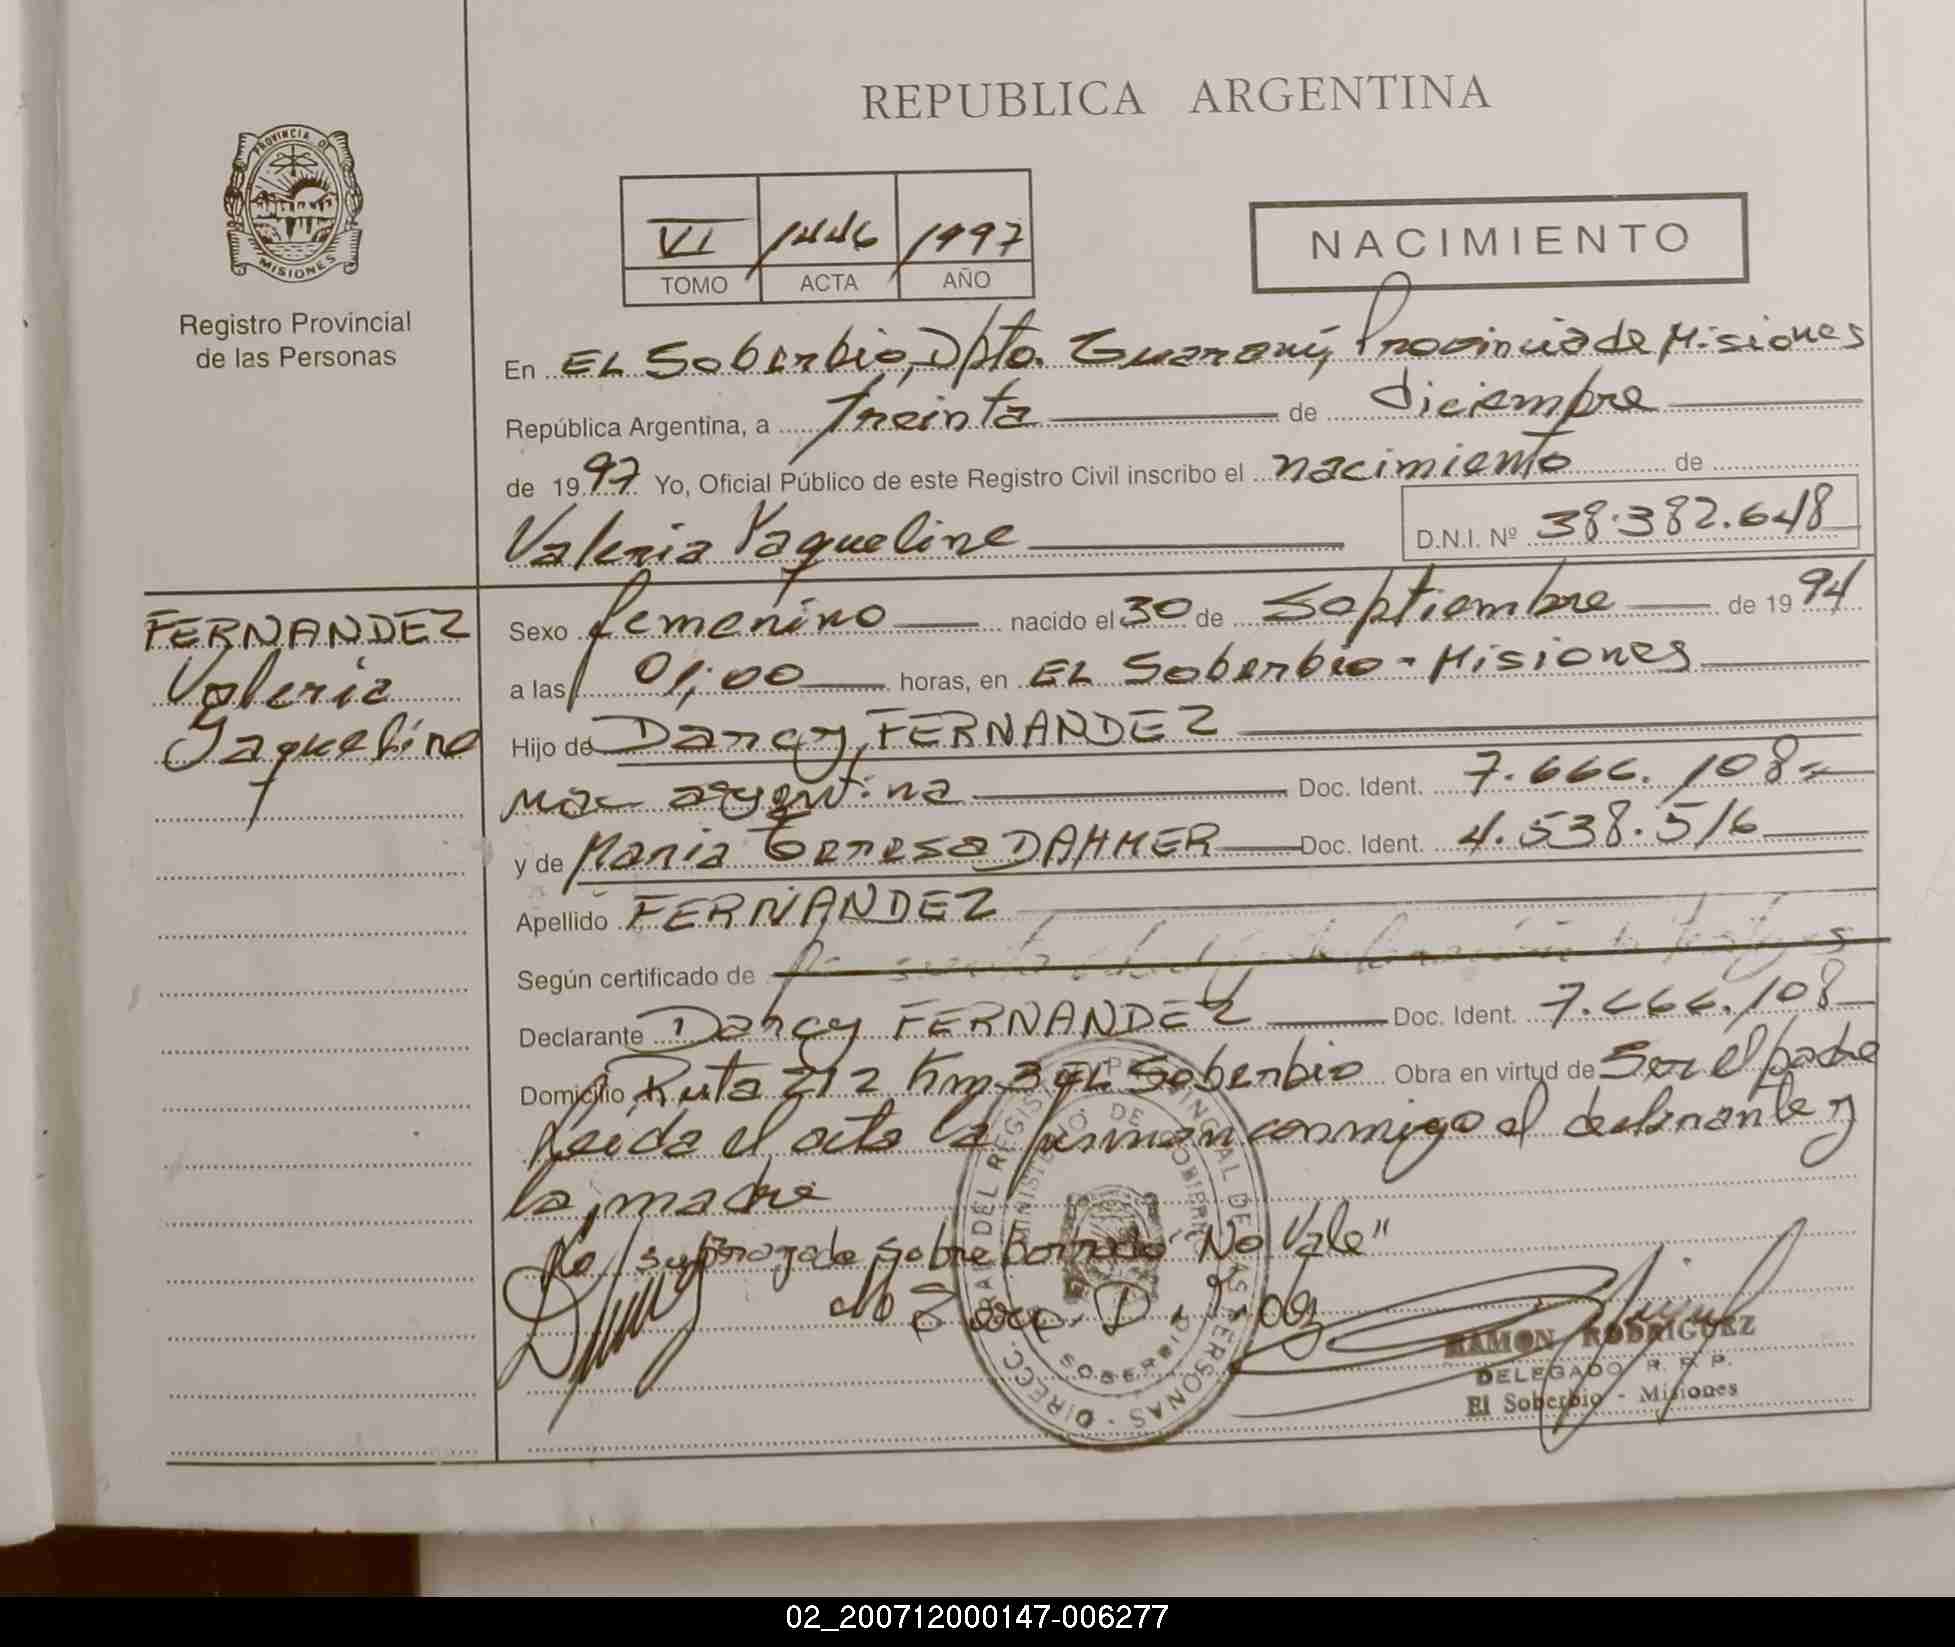 REPUBLICA ARGENTINA
PROVINCIA DE
MISIONES
Registro Provincial
de las Personas
VI 1446 1997
TOMO ACTA AÑO
NACIMIENTO
En EL Soberbio, Dpto. Guaraný Provincia de Misiones
República Argentina, a treinta de diciembre
de 1997 Yo, Oficial Público de este Registro Civil inscribo el nacimiento de
Valeria Yaqueline D.N.I. Nº 38.382.648
FERNANDEZ
Valeria
Yaqueline
Sexo femenino nacido el 30 de Septiembre de 1994
a las 01,00 horas, en EL Soberbio - Misiones
Hijo de Darcy FERNANDEZ
nac argentina Doc. Ident. 7.666.108
y de Maria Teresa DAHMER Doc. Ident. 4.538.516
Apellido FERNANDEZ
Según certificado de
Declarante Darcy FERNANDEZ Doc. Ident. 7.666.108
Domicilio Ruta 212 Km 3 EL Soberbio Obra en virtud de Ser el padre
Leida el acta la firman conmigo el declarante y
la madre
Lo sobre borrado "No Vale"
RAMON RODRIGUEZ
DELEGADO R. P. P.
El Soberbio - Misiones
02_200712000147-006277